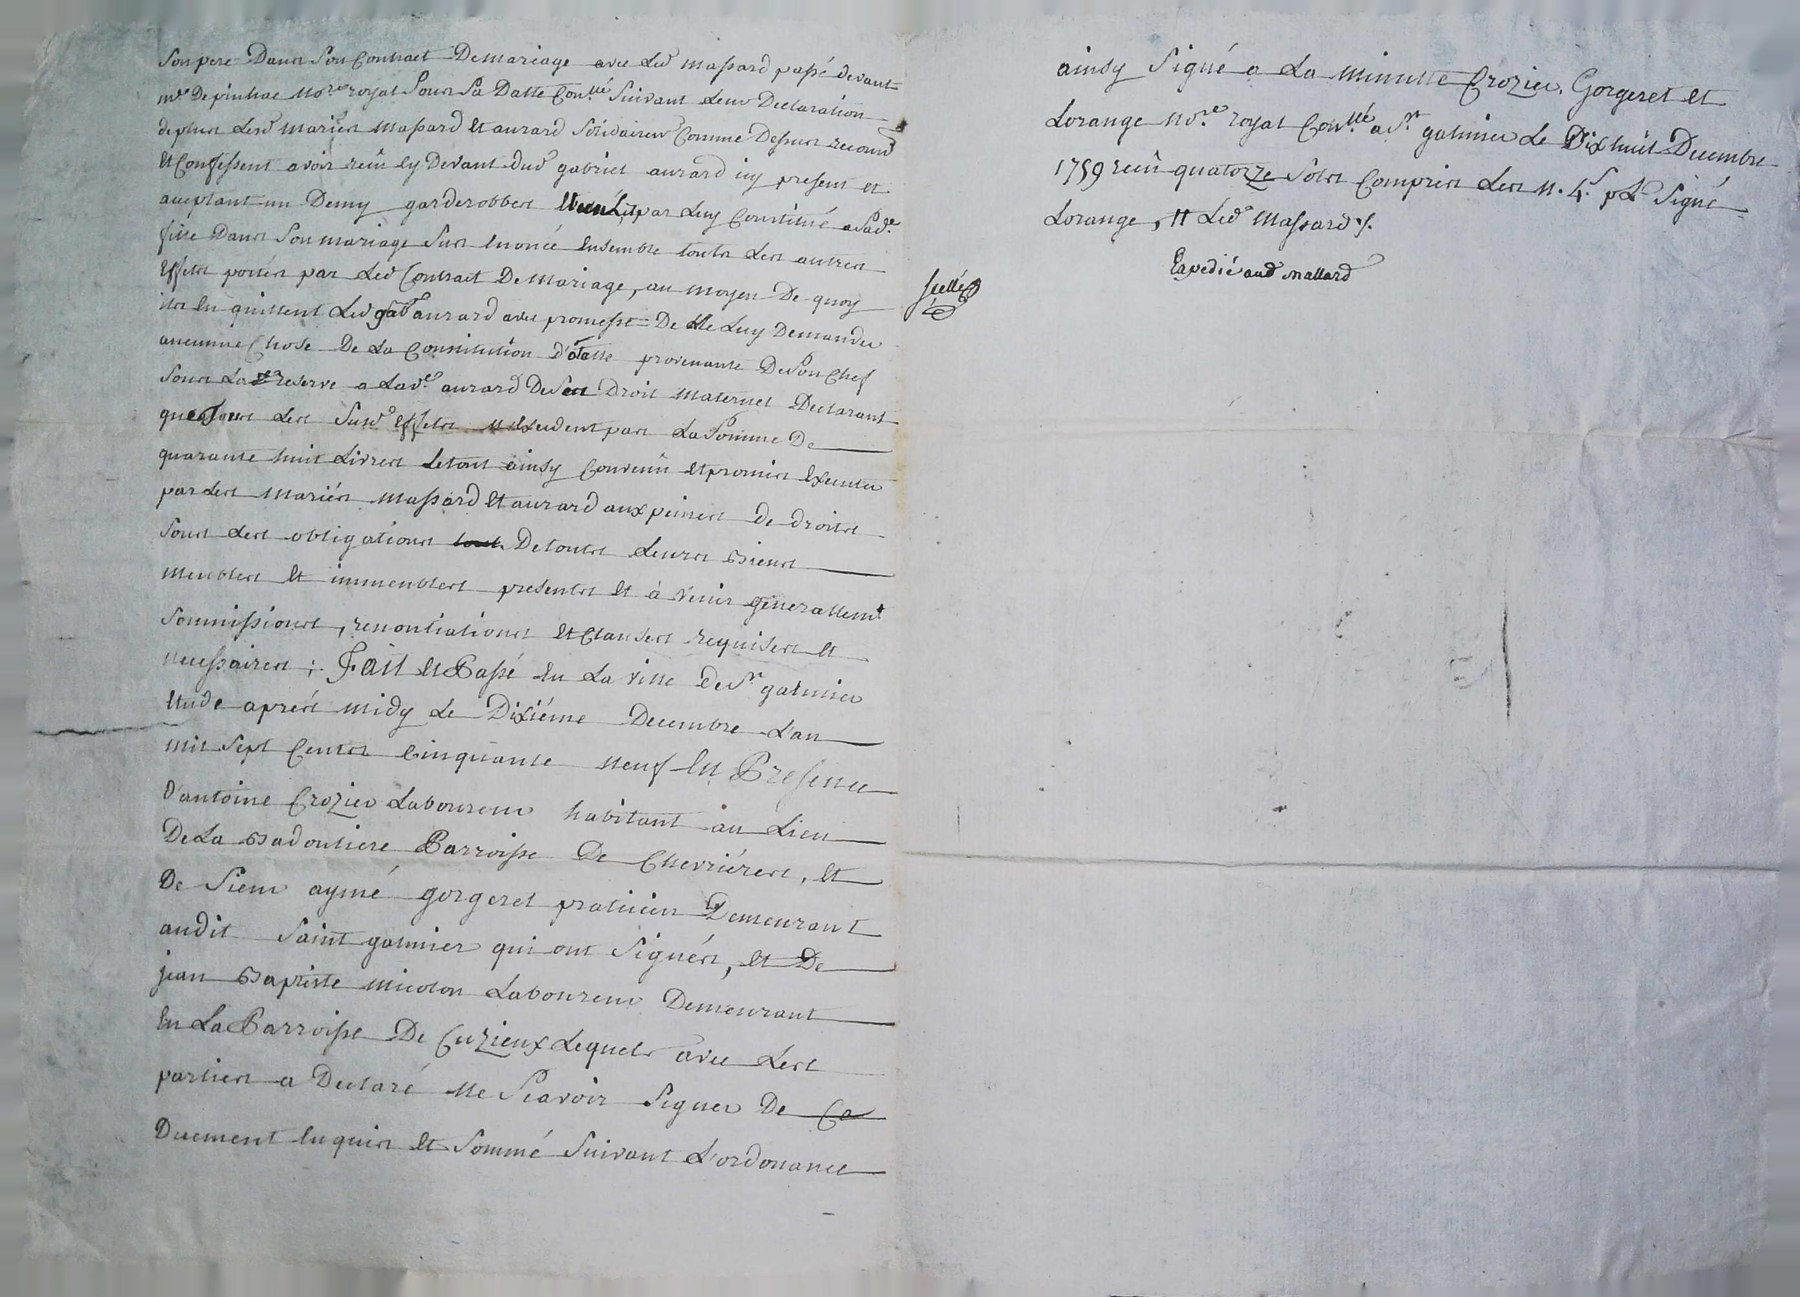 son pere Dans son Contract De mariage avec led massard passé devant
me De pinhac no.re royal sous sa Datte Con.llé suivant leur Declaration
de plus lesd mariés massard et aurard solidairem.t Comme Dessus reconn.t
et Confessent avoir reçu cy Devant dud gabriel aurard icy present et
acceptant un Demy garderobbes par luy Constitué a sad.e
fille Dans son mariage sus enoncé ensemble touts les autres
effets portés par led Contract De mariage, au moyen De quoy
ils en quittent led gab.l aurard avec promesse De ne luy Demander
aucunne Chose De la Constitution provenante De son Chef
sous la reserve a lad.e aurard De ses Droit maternel Declarant
que tous les susd effets n'excedent pas la somme De
quarante huit livres le tout ainsy Convenu et promis executer
par les mariés massard et aurard aux peines de droits
sous les obligations De touts leurs Biens
meubles et immeubles presents et à venir generallem.t
sommissions, renontiations et Clauses requises et
necessaires ; Fait et Passé en la ville de S.t galmier
etude aprés midy le Dixiéme Decembre l'an
mil sept Cents Cinquante neuf En Presence
d'antoine Crozier laboureur habitant au lieu
De la Badouliere Parroisse De Chevriéres, et
De sieur aymé gorgeret praticien Demeurant
audit saint galmier qui ont signés, et De
jean Baptiste micolon laboureur Demeurant
en la Parroisse De Cuzieux lequels avec les
parties a Declaré ne sçavoir signer De Ce
Duement enquis et sommé suivant l'ordonance
ainsy signé a la minutte Crozier, Gorgeret et
Lorange no.re royal Con.llé a S.t galmier le Dix huit Decembre
1759 reçu quatorze sols Compris les n. 4.s p.L signé
Lorange, led massard s.
scellé
Expedié aud mallard